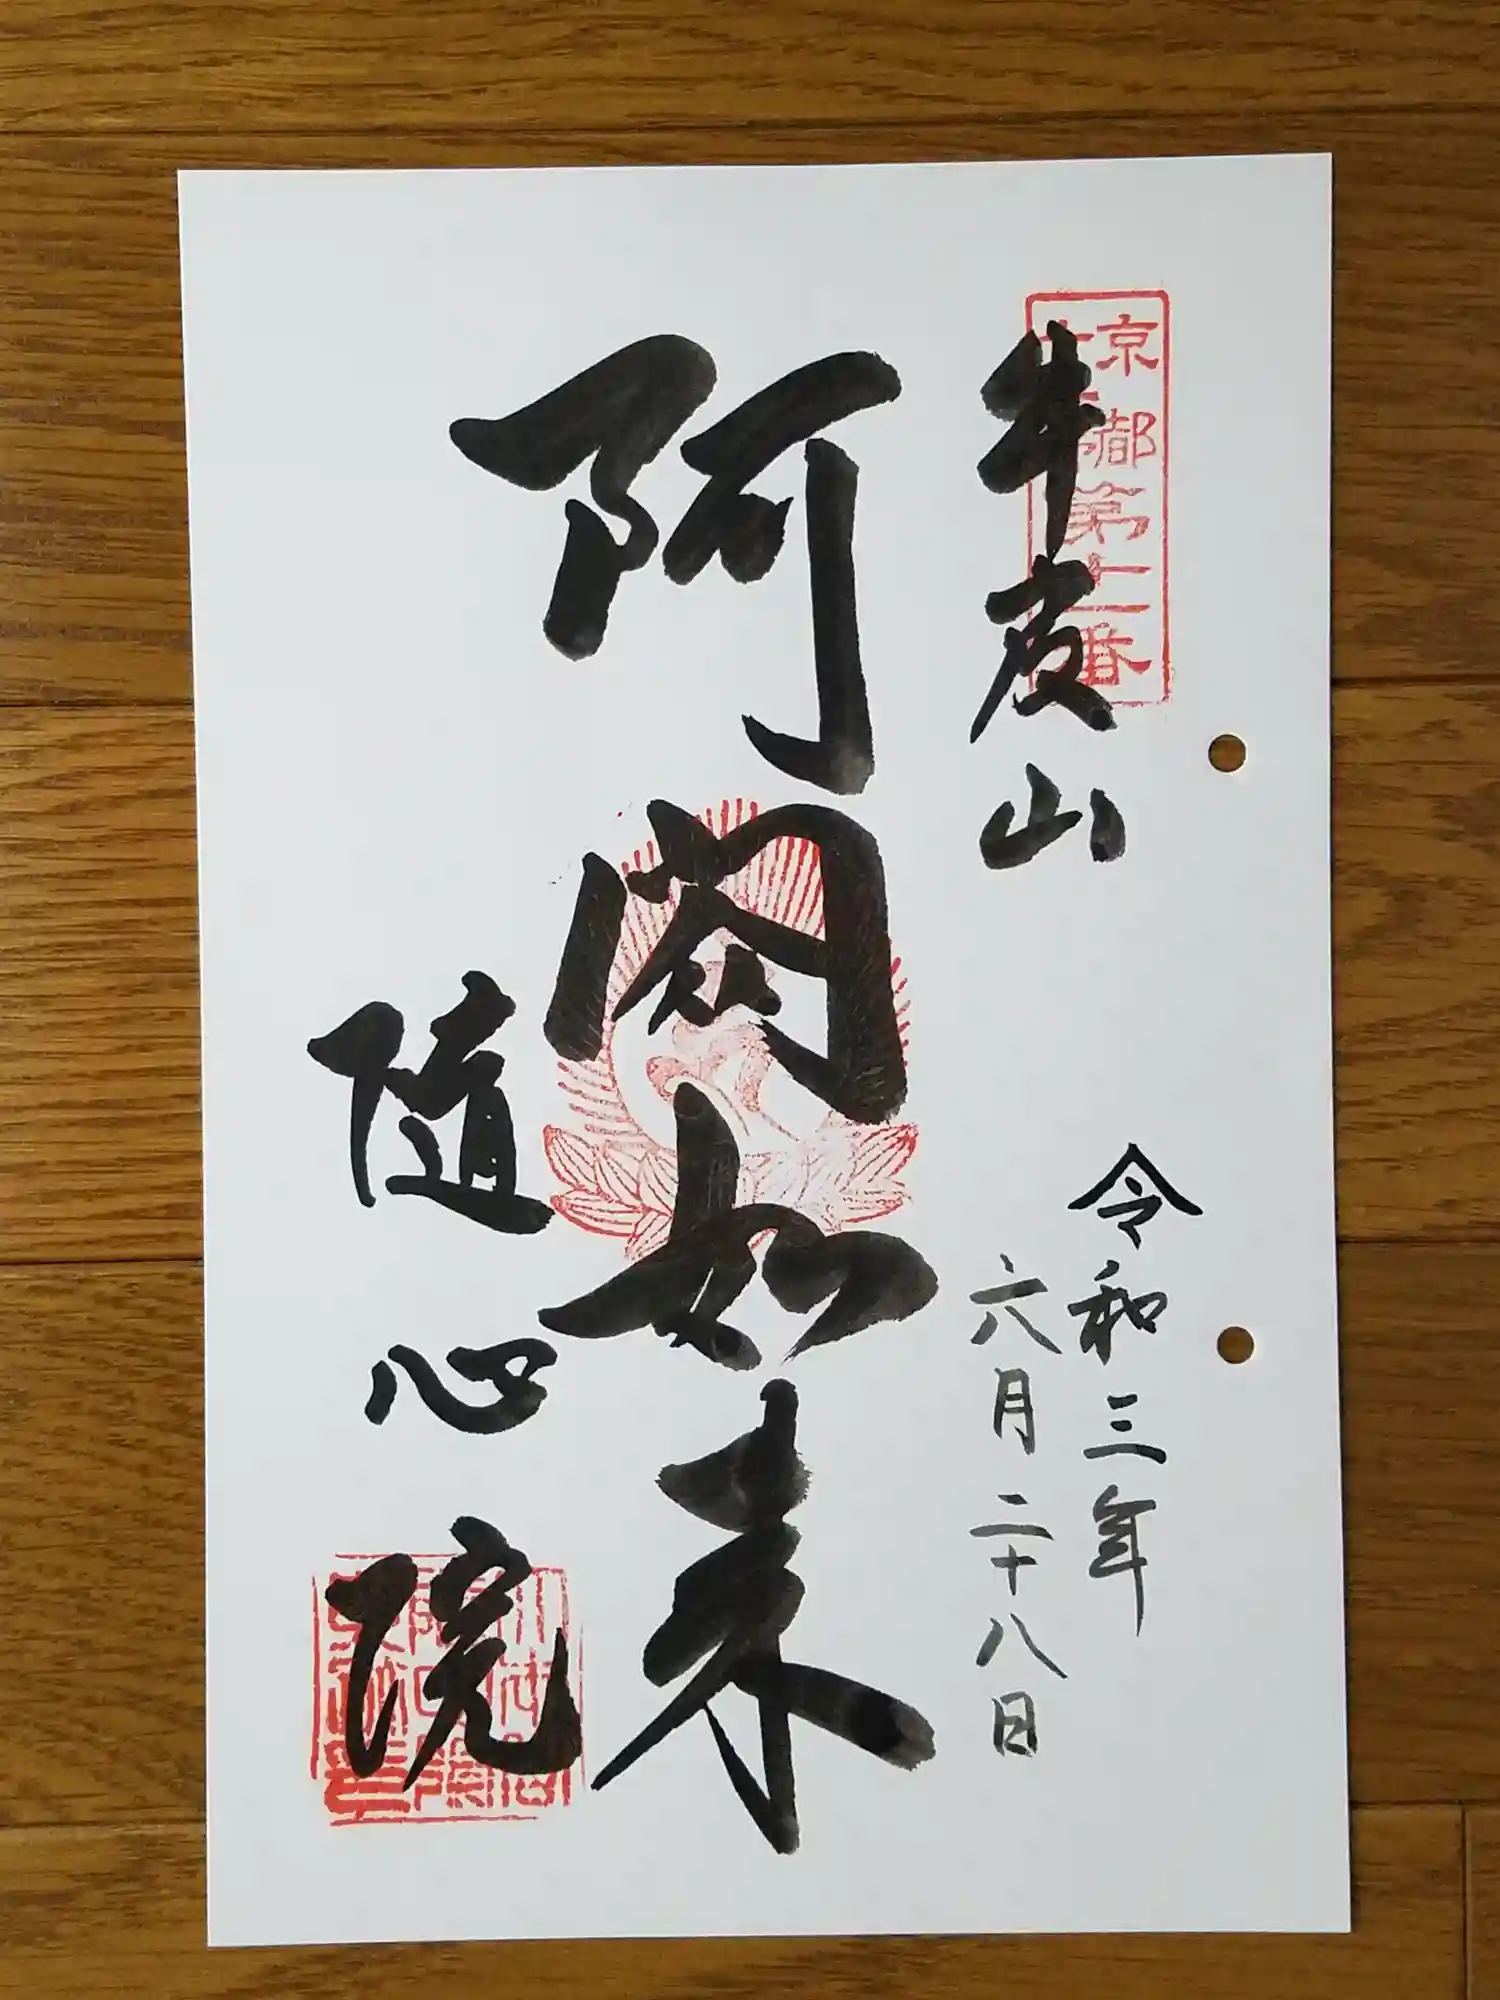 京都
第十二番
牛皮山
令和三年
六月二十八日
阿閦如来
随心院